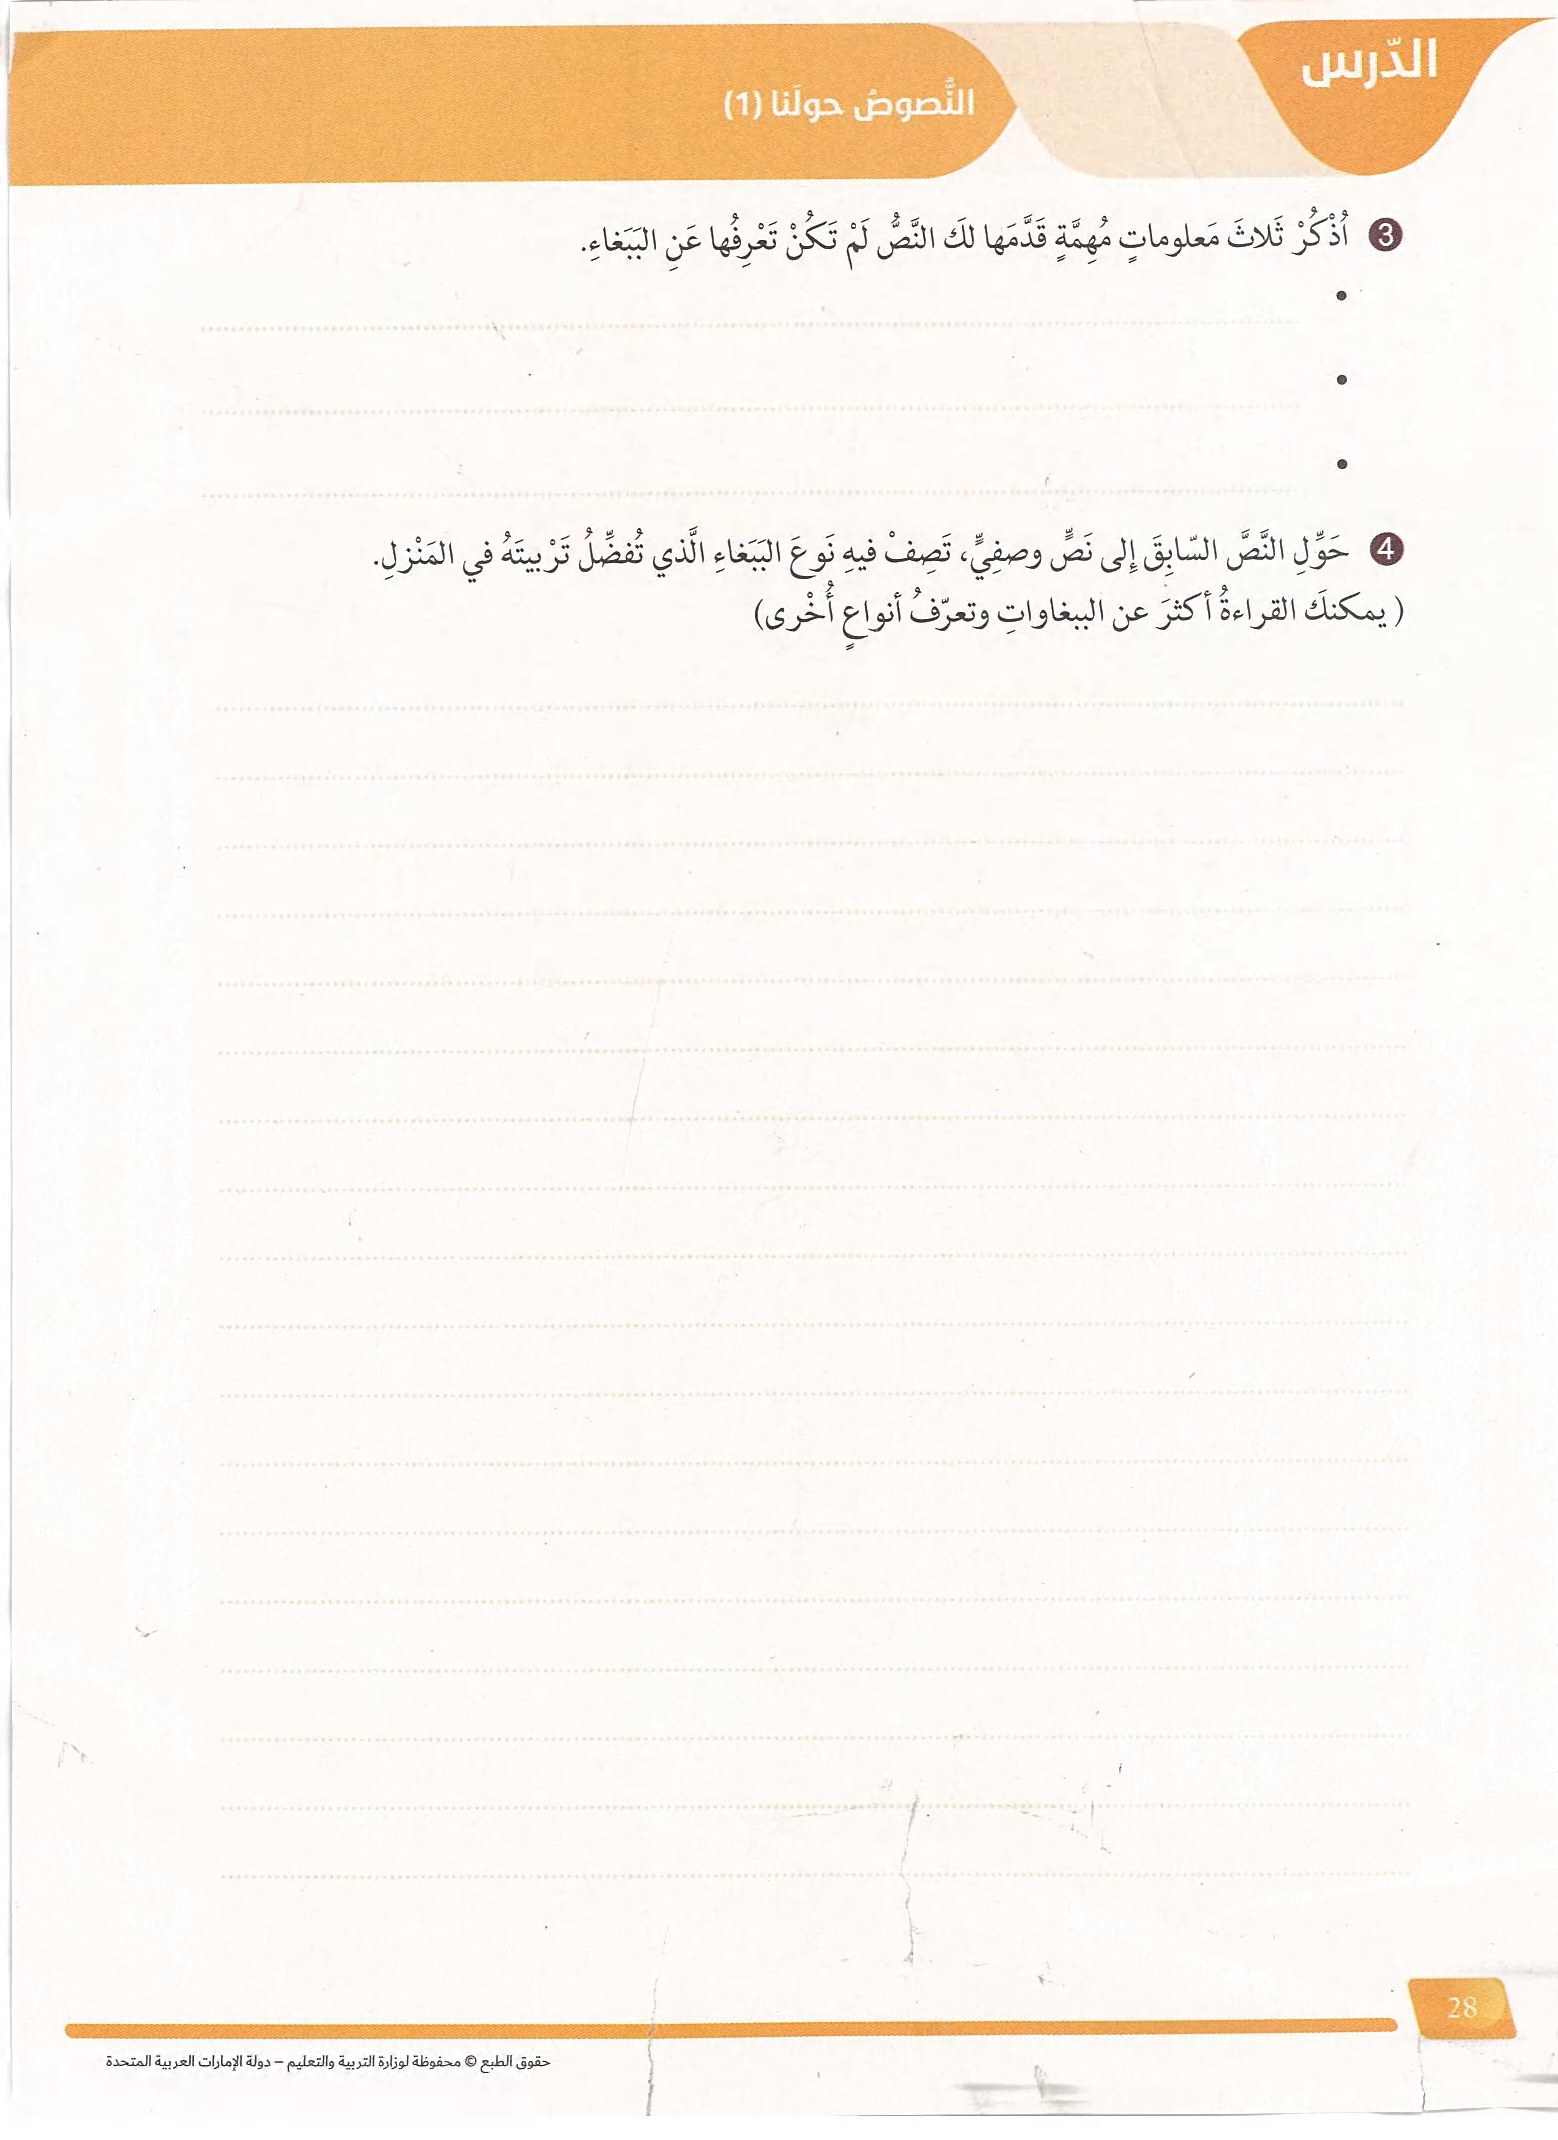 الدّرس
النُّصوصُ حولَنا (1)
3 اُذْكُرْ ثَلاثَ مَعلوماتٍ مُهِمَّةٍ قَدَّمَها لكَ النَّصُّ لَمْ تَكُنْ تَعْرِفُها عَنِ البَبَغاءِ.
•
•
•
4 حَوِّلِ النَّصَّ السّابِقَ إِلى نَصٍّ وصفِيٍّ، تَصِفْ فيهِ نَوعَ البَبَغاءِ الَّذي تُفضِّلُ تَرْبيتَهُ في المَنْزلِ.
( يمكنكَ القراءةُ أكثرَ عن الببغاواتِ وتعرّفُ أنواعٍ أُخْرى)
28
حقوق الطبع © محفوظة لوزارة التربية والتعليم – دولة الإمارات العربية المتحدة